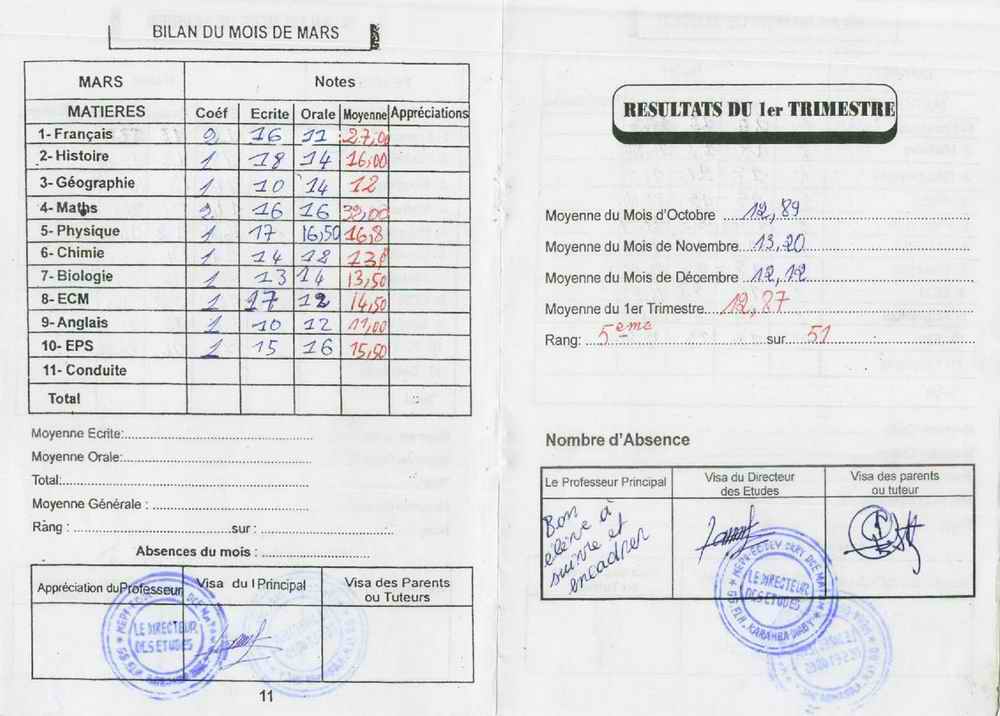 BILAN DU MOIS DE MARS
MARS Notes
MATIERES Coéf Ecrite Orale Moyenne Appréciations
1- Français 2 16 11 27,00
2- Histoire 1 18 14 16,00
3- Géographie 1 10 14 12
4- Maths 2 16 16 32,00
5- Physique 1 17 16,50 16,8
6- Chimie 1 14 12
7- Biologie 1 13 14 13,50
8- ECM 1 17 12 14,50
9- Anglais 1 10 12 11,00
10- EPS 1 15 16 15,50
11- Conduite
Total
Moyenne Ecrite:
Moyenne Orale:
Total:
Moyenne Générale :
Rang : sur :
Absences du mois :
Appréciation du Professeur Visa du Principal Visa des Parents
ou Tuteurs
LE DIRECTEUR
DES ETUDES
11
RESULTATS DU 1er TRIMESTRE
Moyenne du Mois d'Octobre 12,89
Moyenne du Mois de Novembre 13,20
Moyenne du Mois de Décembre 12,12
Moyenne du 1er Trimestre 12,87
Rang: 5eme sur 51
Nombre d'Absence
Le Professeur Principal Visa du Directeur Visa des parents
des Etudes ou tuteur
Bon
élève à
suivre et
encadrer
LE DIRECTEUR
DES ETUDES
ELH. KARAMBA DIABY